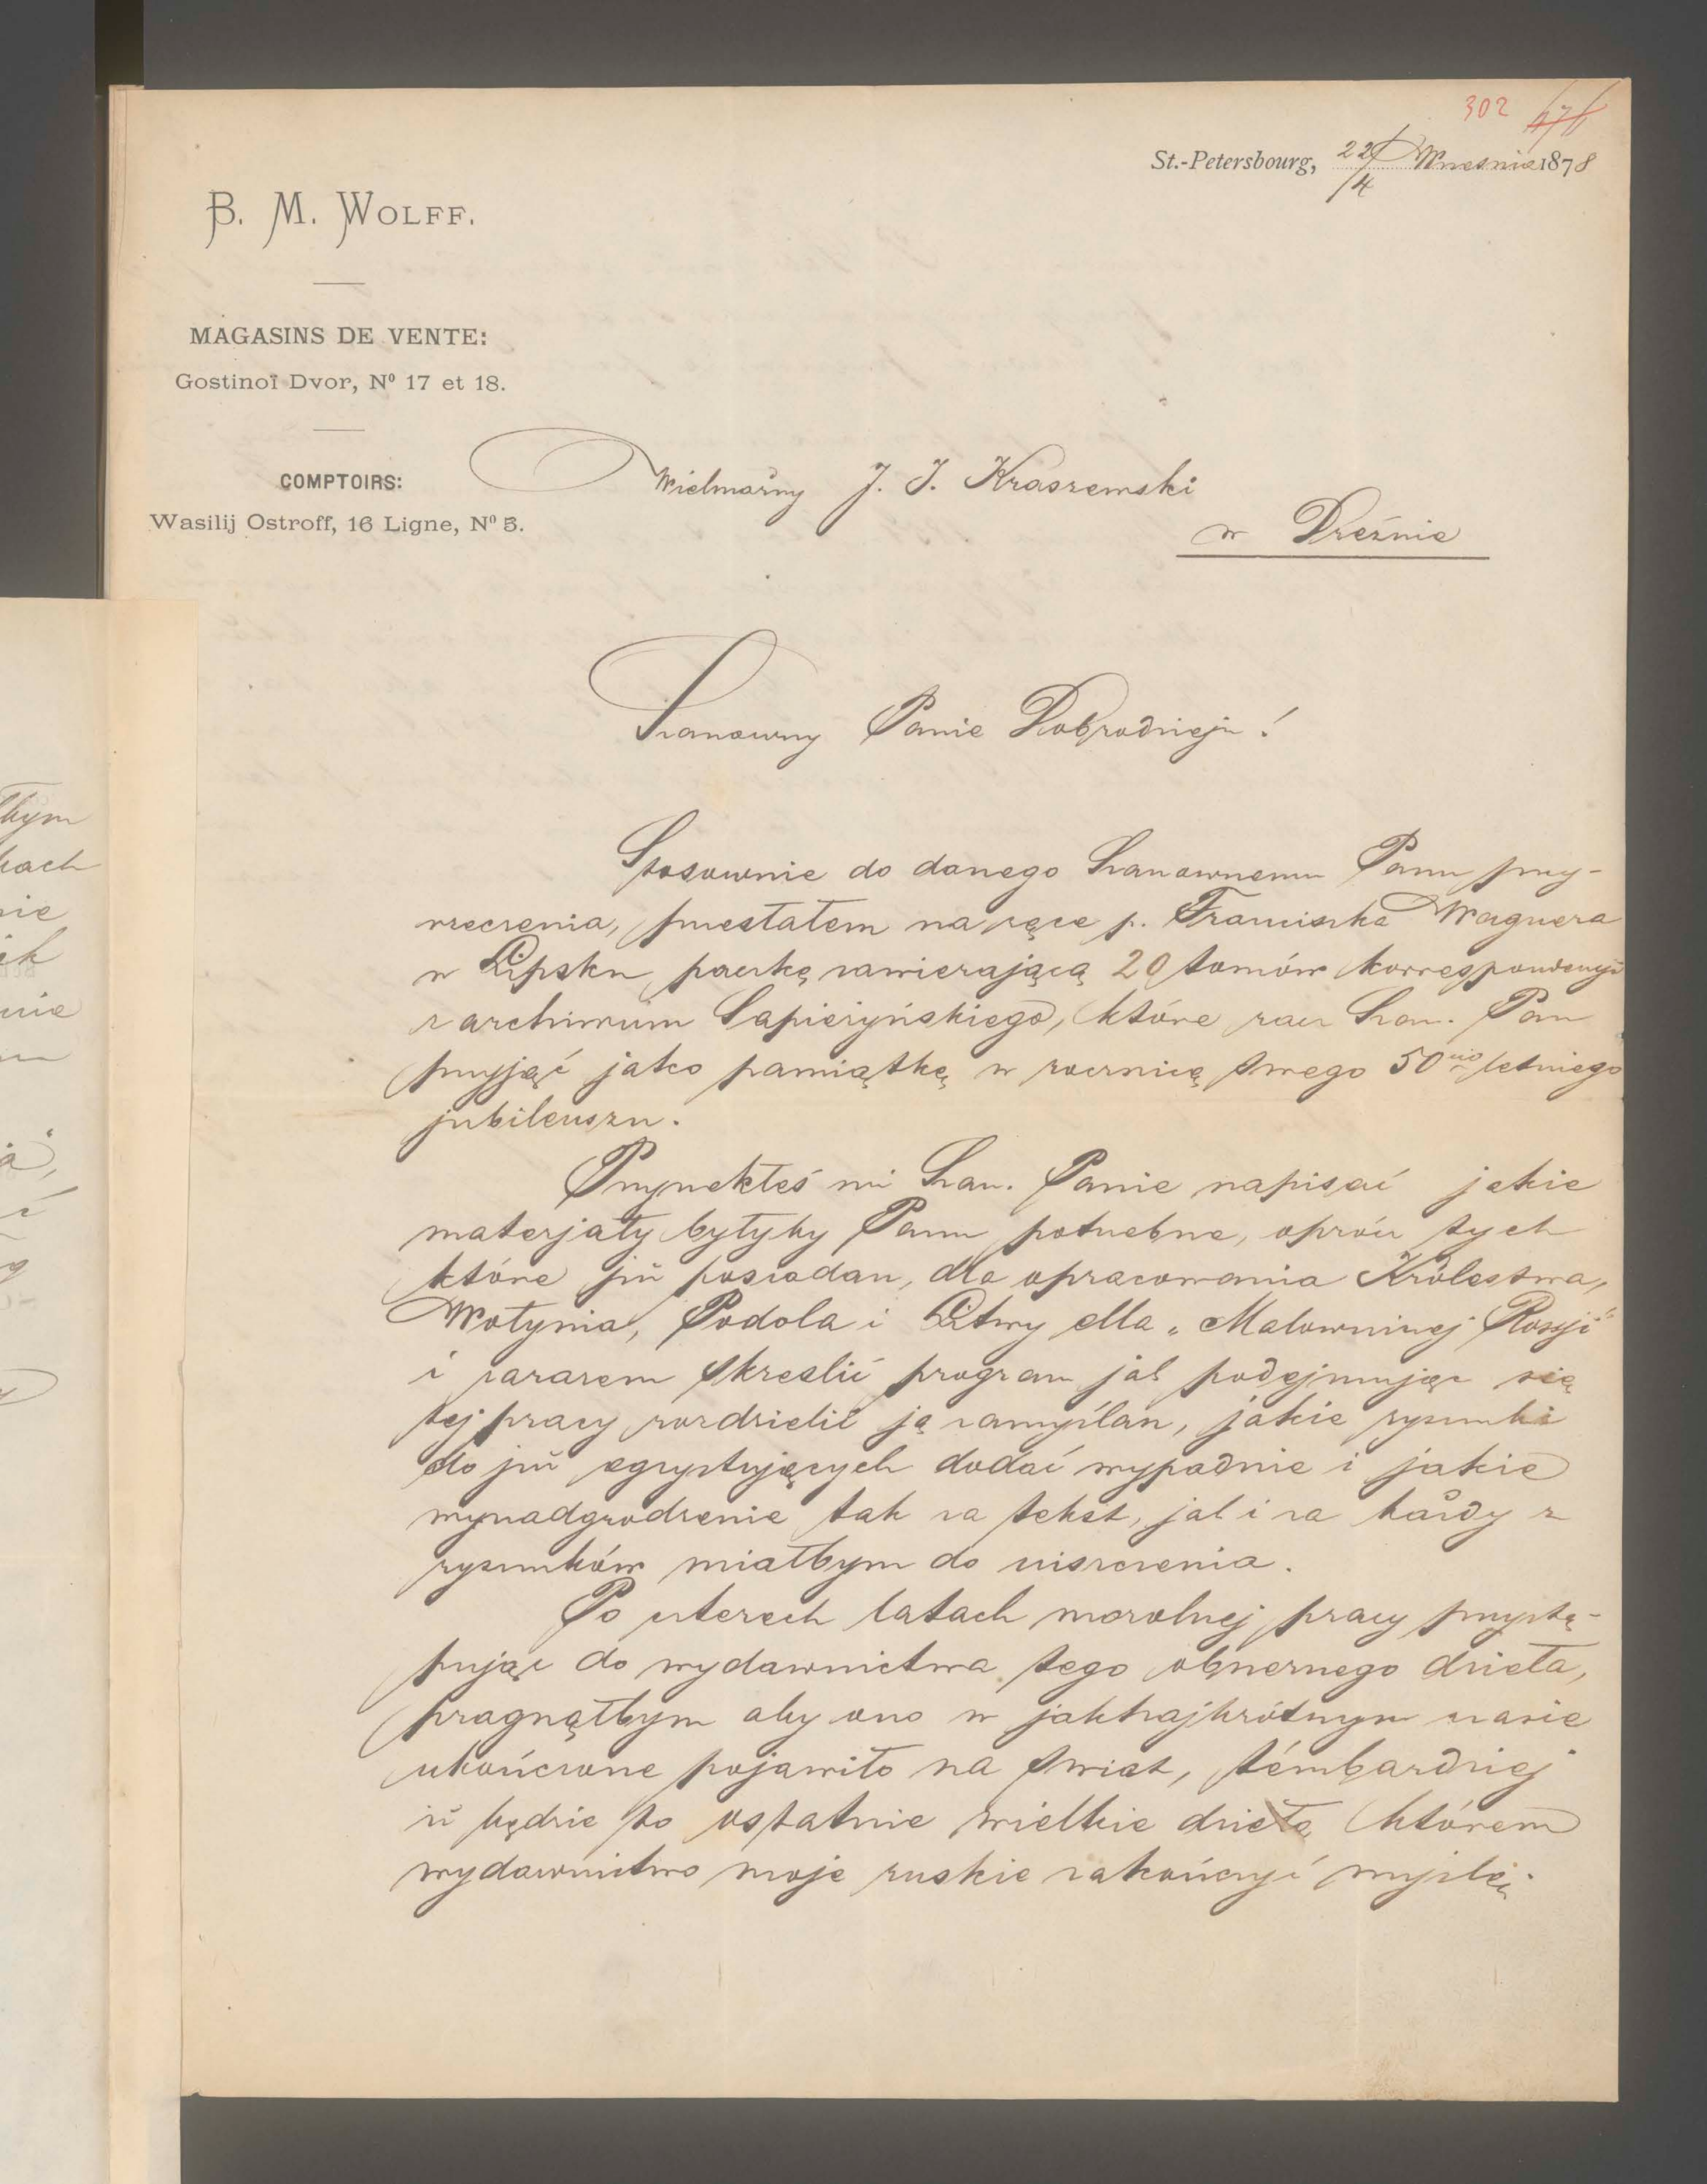 302 471
St.-Petersbourg, 22/4 Września 1878
B. M. WOLFF.
MAGASINS DE VENTE:
Gostinoï Dvor, Nº 17 et 18.
COMPTOIRS:
Wasilij Ostroff, 16 Ligne, Nº 5.
Wielmożny J. I. Kraszewski
w Dreźnie
Szanowny Panie Dobrodzieju!
Stosownie do danego Szanownemu Panu przy-
rzeczenia, przesłałem na ręce p. Franciszka Wagnera
w Lipsku paczkę zawierającą 20 tomów korrespondencyi
z archiwum Sapieżyńskiego, które racz Szan. Pan
przyjąć jako pamiątkę w rocznicę swego 50cio letniego
jubileuszu.
Przyrzekłeś mi Szan. Panie napisać jakie
materjały byłyby Panu potrzebne, oprócz tych
które już posiadasz, dla opracowania Królestwa,
Wołynia, Podola i Litwy dla „Malowniczej Rossji"
i zarazem skreślić program jak podejmując się
tej pracy rozdzielić ją zamyślasz, jakie rysunki
do już egzystujących dodać wypadnie i jakie
wynadgrodzenie tak za tekst, jak i za każdy z
rysunków miałbym do uiszczenia.
Po czterech latach mozolnej pracy przystę-
pując do wydawnictwa tego obszernego dzieła,
pragnąłbym aby ono w jaknajkrótszym czasie
ukończone pojawiło na świat, témbardziej
iż będzie to ostatnie wielkie dzieło którem
wydawnictwo moje ruskie zakończyć myślę.
łbym
kach
nie